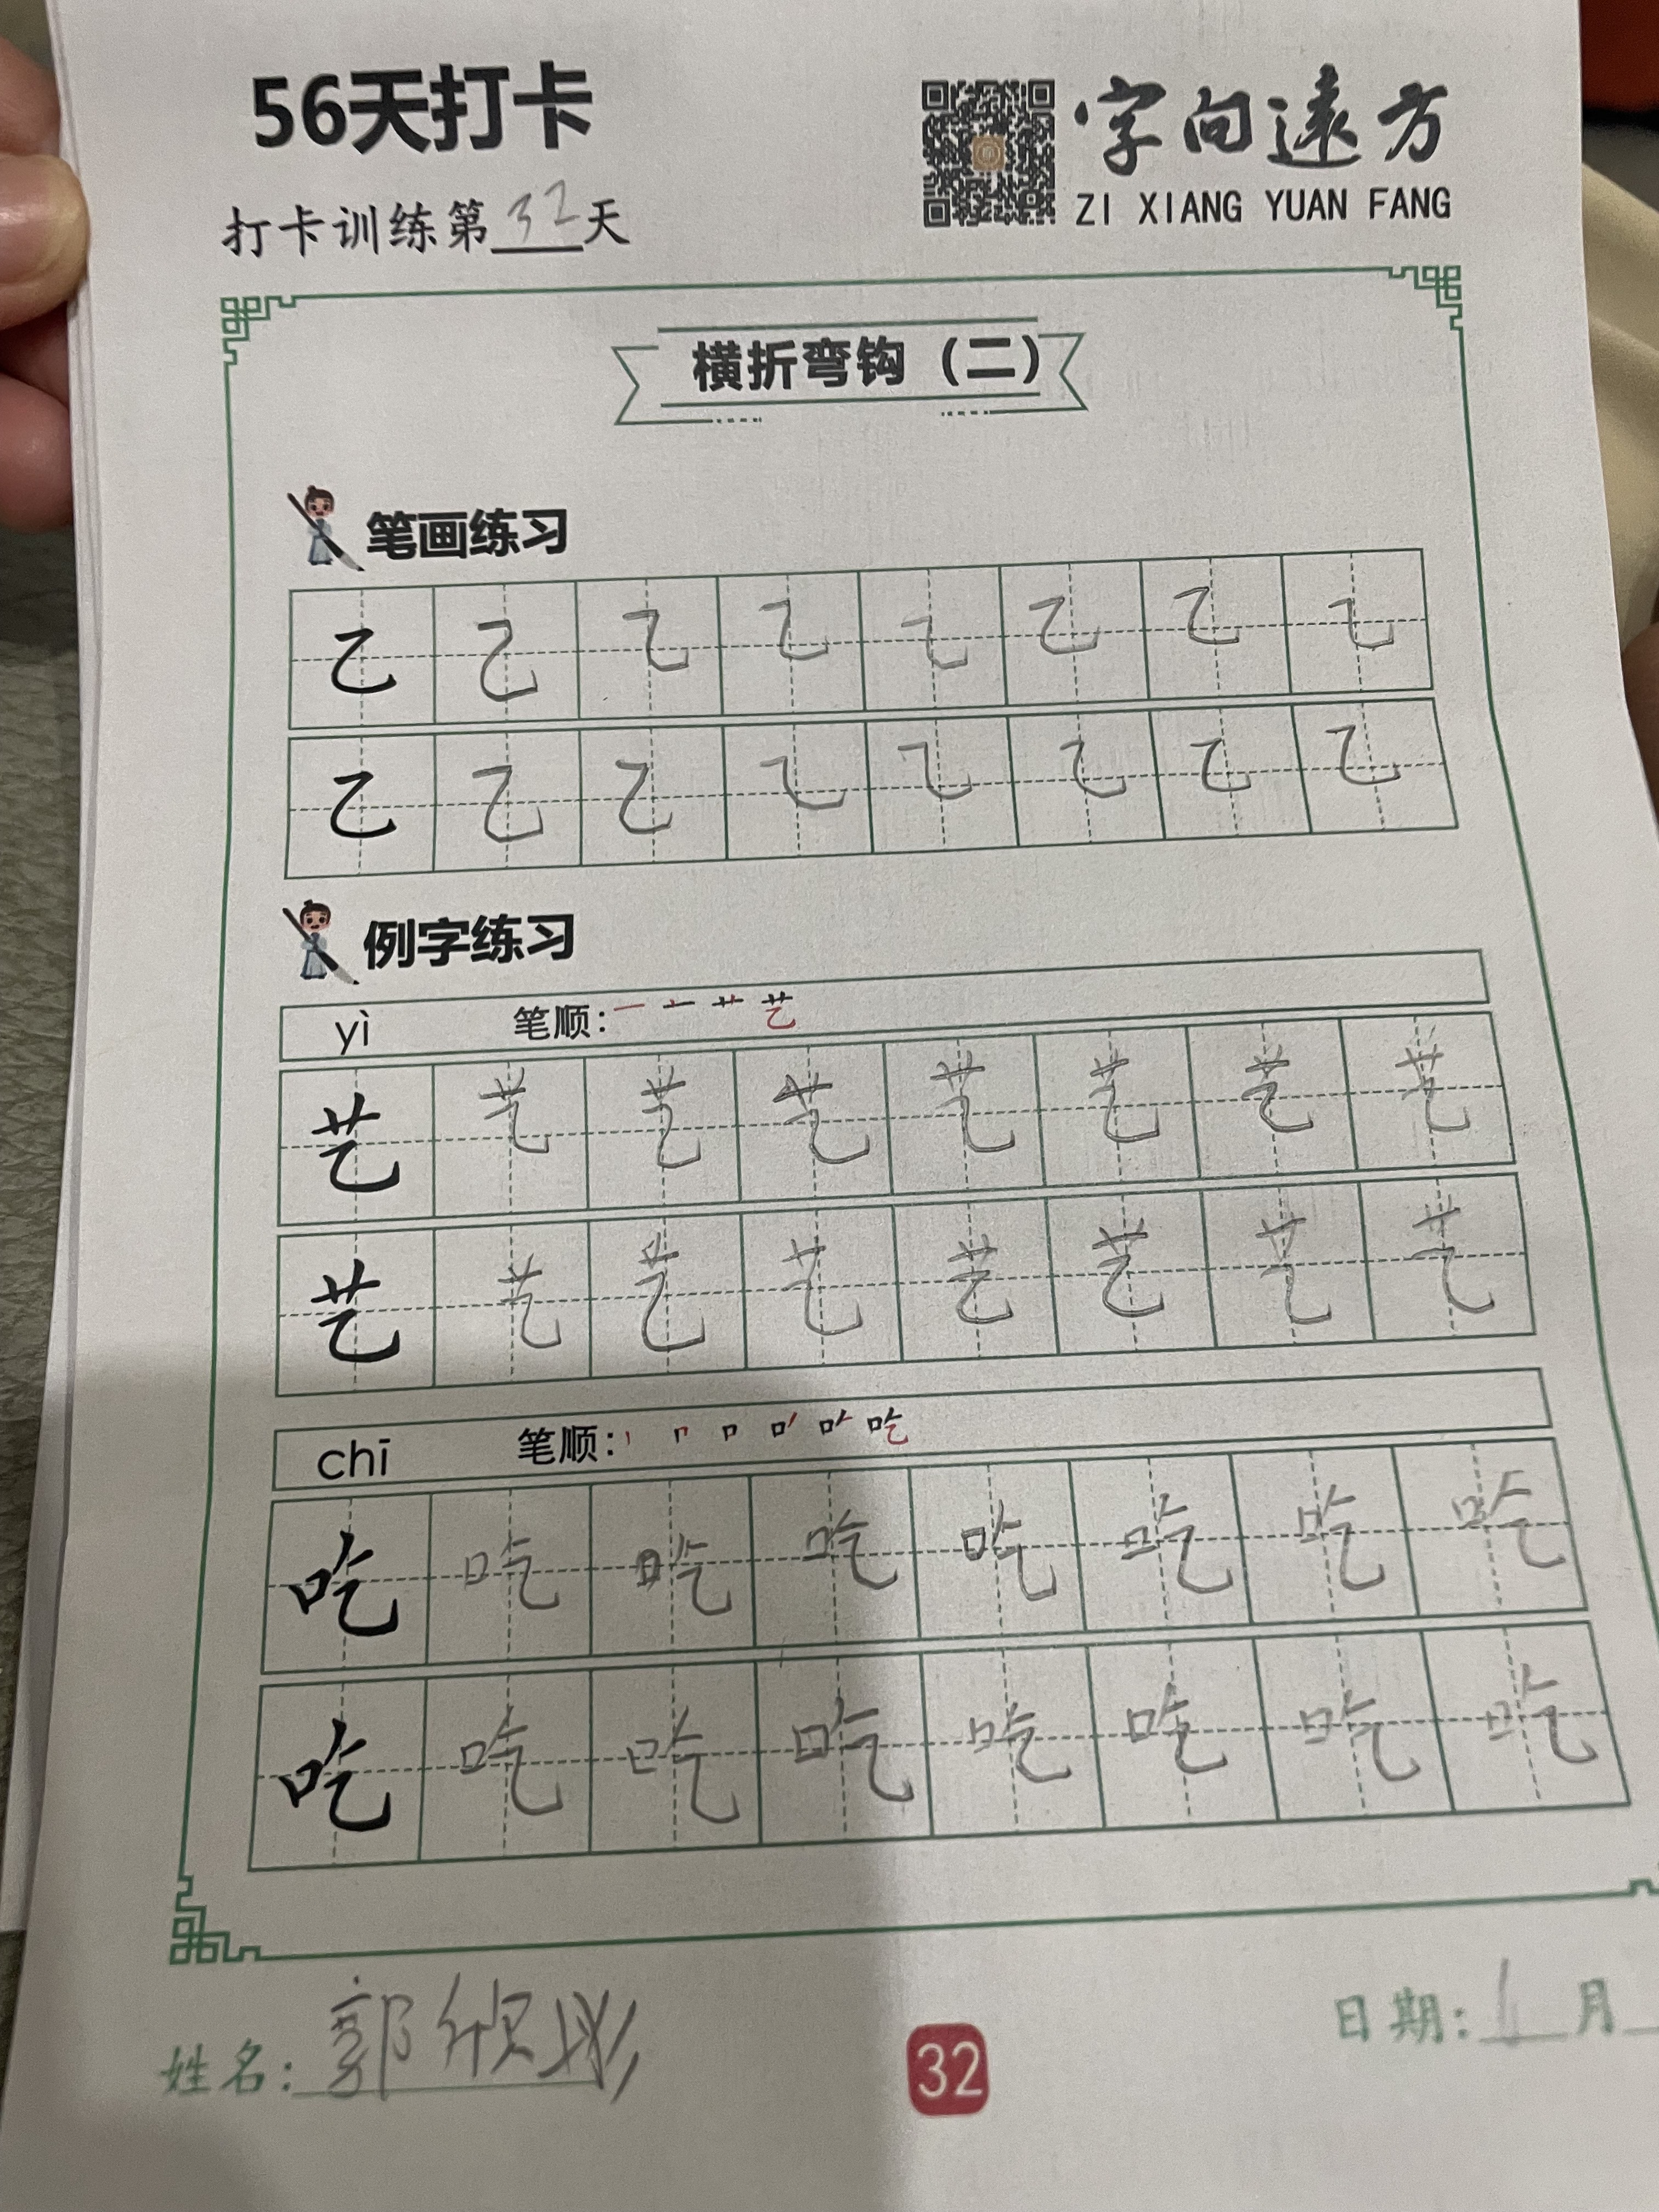 56天打卡
字向远方
ZI XIANG YUAN FANG
打卡训练第32天
横折弯钩（二）
笔画练习
乙 乙 乙 乙 乙 乙 乙 乙
乙 乙 乙 乙 乙 乙 乙 乙
例字练习
yì 笔顺： 一 艺
艺 艺 艺 艺 艺 艺 艺 艺
艺 艺 艺 艺 艺 艺 艺 艺
chī 笔顺： 丨 口 吃
吃 吃 吃 吃 吃 吃 吃 吃
吃 吃 吃 吃 吃 吃 吃 吃
姓名：郭
32
日期： 月